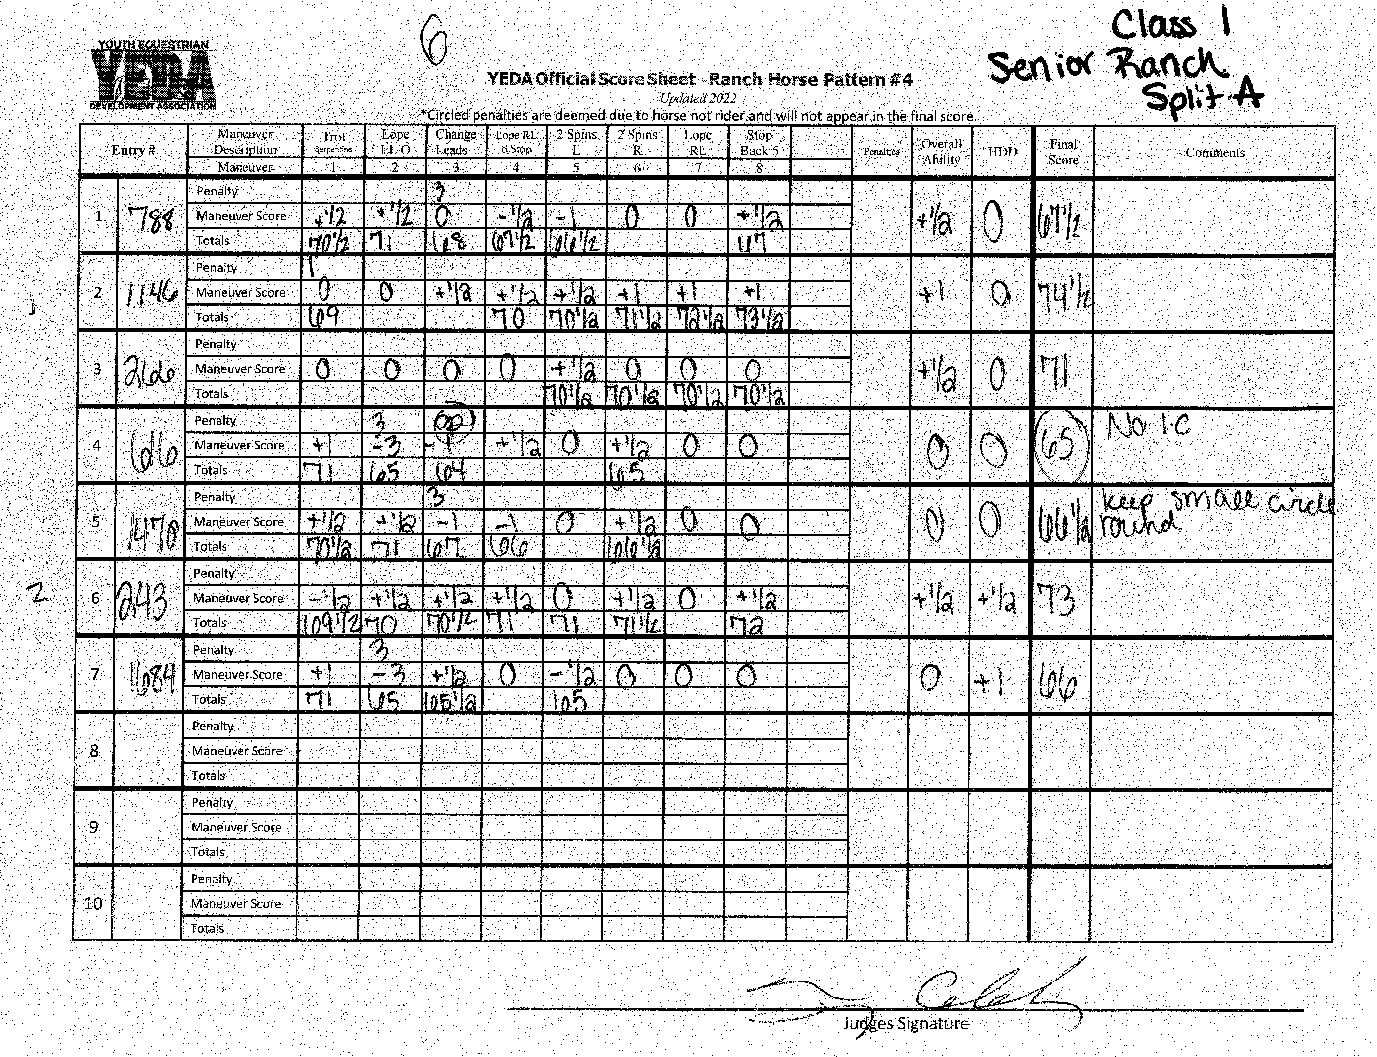 6
Class 1
Senior Ranch
Split A
YOUTH EQUESTRIAN
YEDA
DEVELOPMENT ASSOCIATION
YEDA Official Score Sheet - Ranch Horse Pattern #4
Updated 2022
*Circled penalties are deemed due to horse not rider and will not appear in the final score.
Entry # Maneuver Description Trot Lope Change Leads Lope RL 2 Spins L 2 Spins R Lope RL Stop Back 5 Penalties Overall Ability HDD Final Score Comments
Maneuver 1 2 3 4 5 6 7 8
Penalty 3
1 788 Maneuver Score +1/2 +1/2 0 -1/2 -1 0 0 +1/2 +1/2 0 67 1/2
Totals 70 1/2 71 68 67 1/2 66 1/2 67
Penalty 1
1 2 1146 Maneuver Score 0 0 +1/2 +1/2 +1/2 +1 +1 +1 +1 0 74 1/2
Totals 69 70 70 1/2 71 1/2 72 1/2 73 1/2
Penalty
3 266 Maneuver Score 0 0 0 0 +1/2 0 0 0 +1/2 0 71
Totals 70 1/2 70 1/2 70 1/2 70 1/2
Penalty 3 OP
4 666 Maneuver Score +1 -3 -1 +1/2 0 +1/2 0 0 0 0 65 No LC
Totals 71 65 64 65
Penalty 3
5 1470 Maneuver Score +1/2 +1/2 -1 -1 0 +1/2 0 0 0 0 66 1/2 keep small circle
round
Totals 70 1/2 71 67 66 66 1/2
Penalty
2 6 243 Maneuver Score -1/2 +1/2 +1/2 +1/2 0 +1/2 0 +1/2 +1/2 +1/2 73
Totals 69 1/2 70 70 1/2 71 71 71 1/2 72
Penalty 3
7 1684 Maneuver Score +1 -3 +1/2 0 -1/2 0 0 0 0 +1 66
Totals 71 65 65 1/2 65
Penalty
8 Maneuver Score
Totals
Penalty
9 Maneuver Score
Totals
Penalty
10 Maneuver Score
Totals
Judges Signature